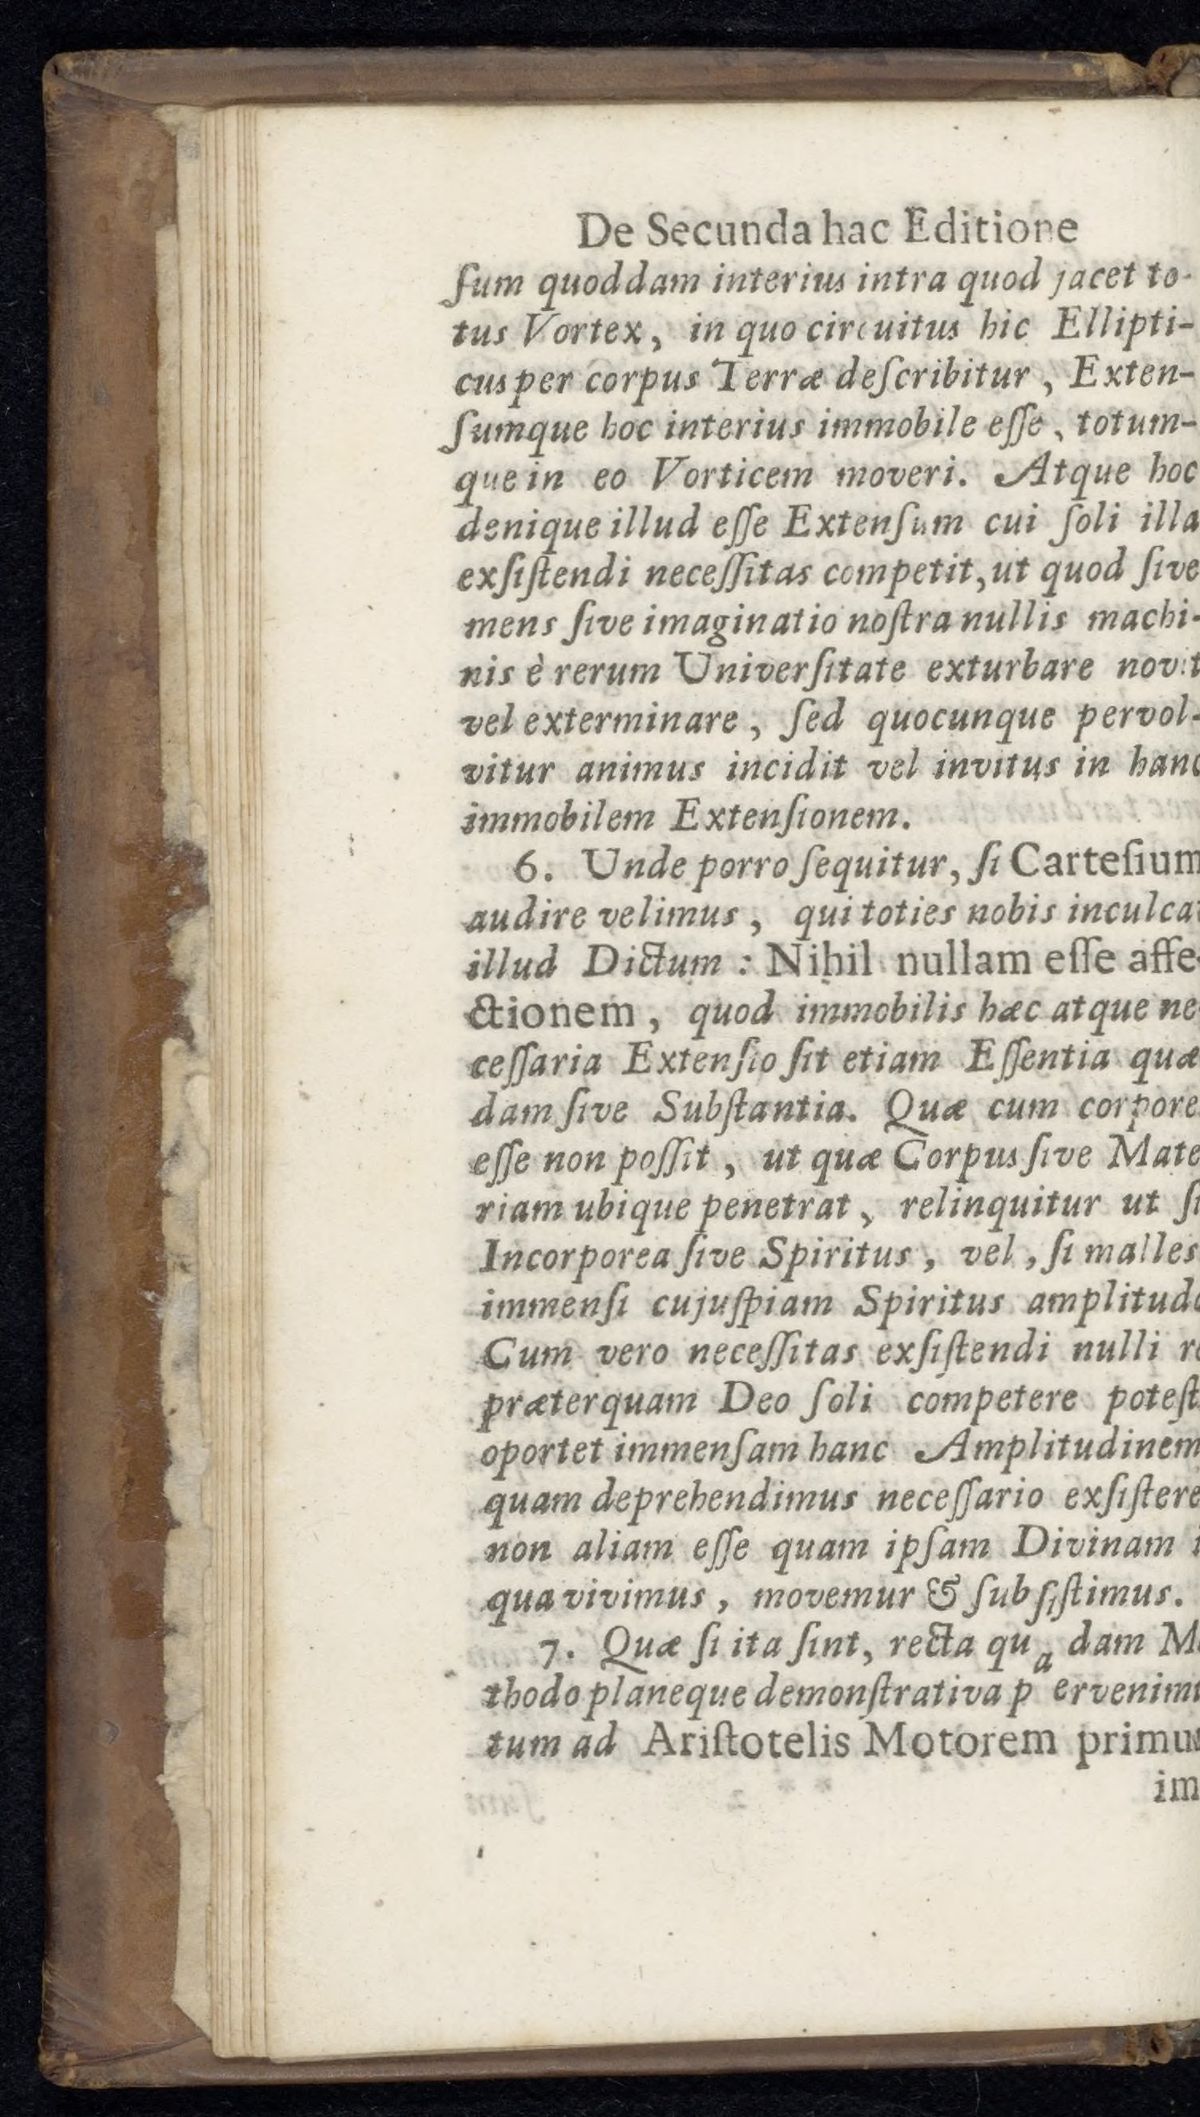 De Secunda hac Editione
ſum quoddam interius intra quod jacet to-
tus Vortex, in quo circuitus hic Ellipti-
cus per corpus Terræ deſcribitur, Exten-
ſumque hoc interius immobile eſſe, totum-
que in eo Vorticem moveri. Atque hoc
denique illud eſſe Extenſum cui ſoli illa
exſiſtendi neceſſitas competit, ut quod ſive
mens ſive imaginatio noſtra nullis machi-
nis è rerum Univerſitate exturbare novit
vel exterminare, ſed quocunque pervol-
vitur animus incidit vel invitus in hanc
immobilem Extenſionem.
6. Unde porro ſequitur, ſi Carteſium
audire velimus, qui toties nobis inculcat
illud Dictum: Nihil nullam eſſe affe-
ctionem, quod immobilis hæc atque ne-
ceſſaria Extenſio ſit etiam Eſſentia quæ
dam ſive Subſtantia. Quæ cum corpore
eſſe non poſſit, ut quæ Corpus ſive Mate
riam ubique penetrat, relinquitur ut ſi
Incorporea ſive Spiritus, vel, ſi malles
immenſi cujuſpiam Spiritus amplitudo
Cum vero neceſſitas exſiſtendi nulli re
præterquam Deo ſoli competere poteſt
oportet immenſam hanc Amplitudinem
quam deprehendimus neceſſario exſiſtere
non aliam eſſe quam ipſam Divinam i
qua vivimus, movemur & ſubſiſtimus.
7. Quæ ſi ita ſint, recta qua dam M
thodo planeque demonſtrativa p ervenimu
tum ad Ariſtotelis Motorem primum
im